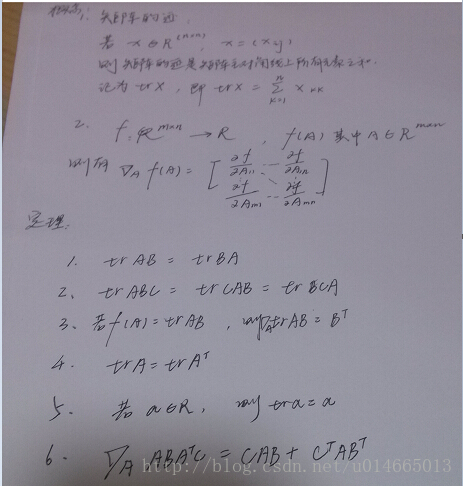 概念: 1. 矩阵的迹.
若 x∈R^(n×n), x=(xij)
则矩阵的迹是矩阵主对角线上所有元素之和.
记为 trX, 即 trX = ∑_{k=1}^{n} x_kk
2. f: R^{m×n} → R, f(A) 其中 A∈R^{m×n}
则有 ∇_A f(A) = [ ∂f/∂A_11 ... ∂f/∂A_1n
∂f/∂A_m1 ... ∂f/∂A_mn ]
定理:
1. trAB = trBA
2. trABC = trCAB = trBCA
3. 若 f(A) = trAB, 则 ∇_A trAB = B^T
4. trA = trA^T
5. 若 a∈R, 则 tra = a
6. ∇_A ABA^TC = CAB + C^TAB^T
http://blog.csdn.net/u014665013